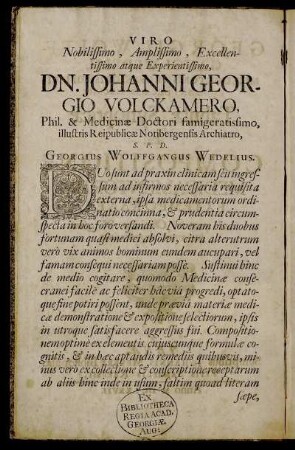 VIRO
Nobilissimo, Amplissimo, Excellen-
tissimo atque Experientissimo,
DN. JOHANNI GEOR-
GIO VOLCKAMERO,
Phil. & Medicinæ Doctori famigeratissimo,
illustris Reipublicæ Noribergensis Archiatro,
S. P. D.
GEORGIUS WOLFFGANGUS WEDELIUS.
DUo sunt ad praxin clinicam seu ingres-
sum ad infirmos necessaria requisita
externa, ipsa medicamentorum ordi-
natio concinna, & prudentia circum-
specta in hoc foro versandi. Noveram his duobus
fortunam quasi medici absolvi, citra alterutrum
verò vix animos hominum eundem aucupari, vel
famam consequi necessariam posse. Sustinui hinc
de medio cogitare, quomodo Medicinæ conse-
cranei facilè ac feliciter hâc viâ progredi, optato-
que fine potiri possent, unde prævia materiæ medi-
cæ demonstratione & expositione selectiorum, ipsis
in utroque satisfacere aggressus fui. Compositio-
nem optimè ex elementis cujuscunque formulæ co-
gnitis, & in hæc aptandis remediis quibusvis, mi-
nus verò ex collectione & conscriptione receptarum
ab aliis hinc inde in usum, saltim quoad literam
sæpe,
EX
BIBLIOTHECA
REGIA ACAD.
GEORGIÆ
AUG: